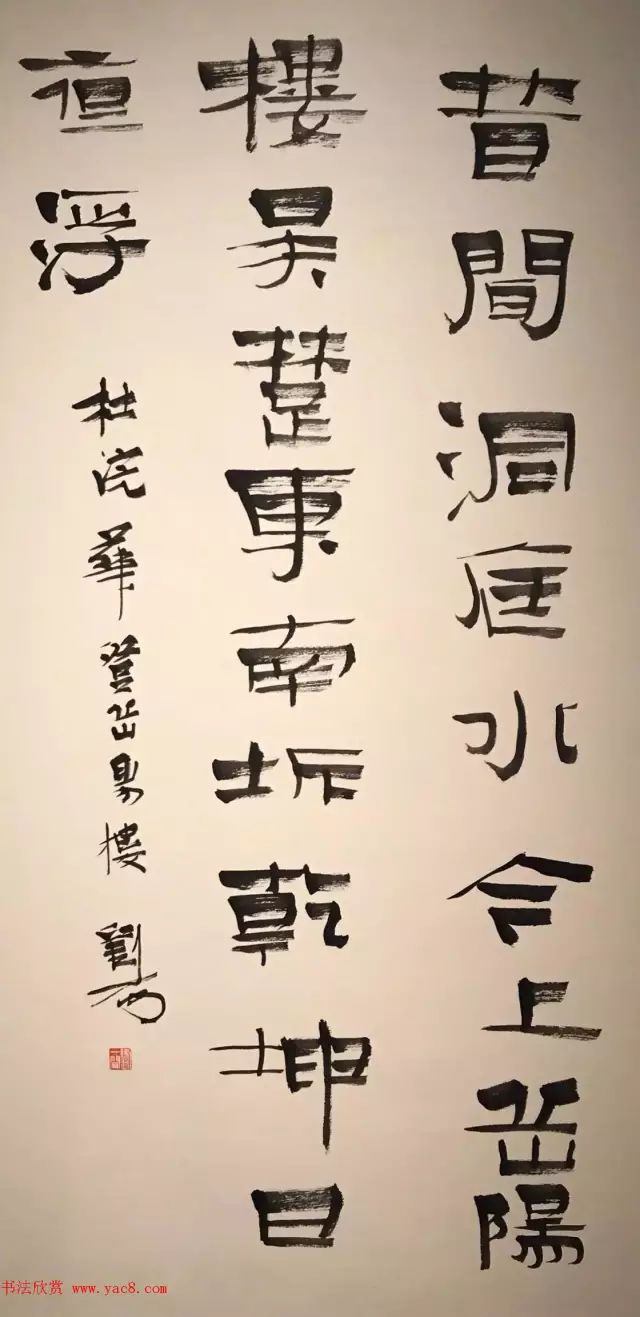 昔間洞庭水今上岳陽
樓吴楚東南坼乾坤日
夜浮
杜浣華登岳昜樓 劉
书法欣赏 www.yac8.com